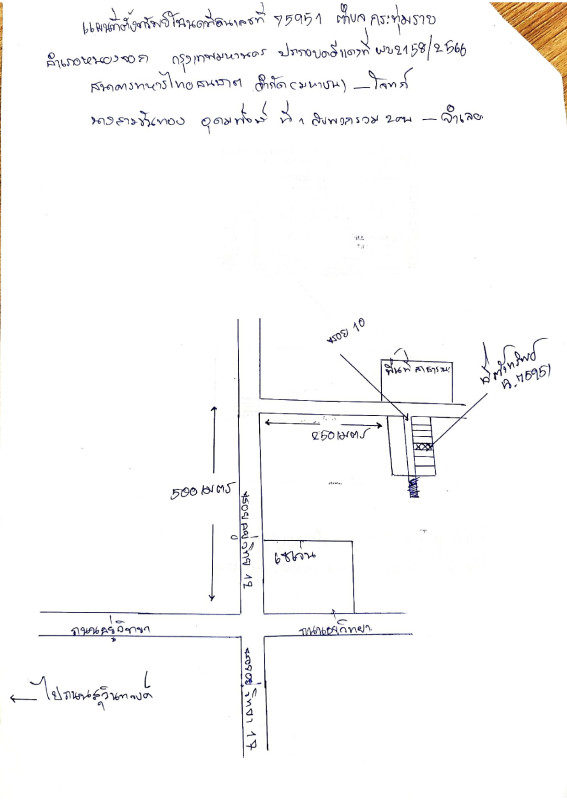 แผนที่ตั้งทรัพย์โฉนดที่ดินเลขที่ 75951 ตำบล กระทุ่มราย
อำเภอหนองจอก กรุงเทพมหานคร ประกอบคดีแดงที่ ผบ2158/2566
ธนาคารทหารไทยธนชาต จำกัด(มหาชน) – โจทก์
ที่ 1 กับพวกรวม 2 คน – จำเลย
ซอย 10
พื้นที่สาธารณะ
ที่ตั้งทรัพย์
ฉ.75951
250 เมตร
500 เมตร
เซเว่น
ถนนอยู่วิทยา
ถนนอยู่วิทยา
ซอยอยู่วิทยา 17
ไปถนนสุวินทวงศ์